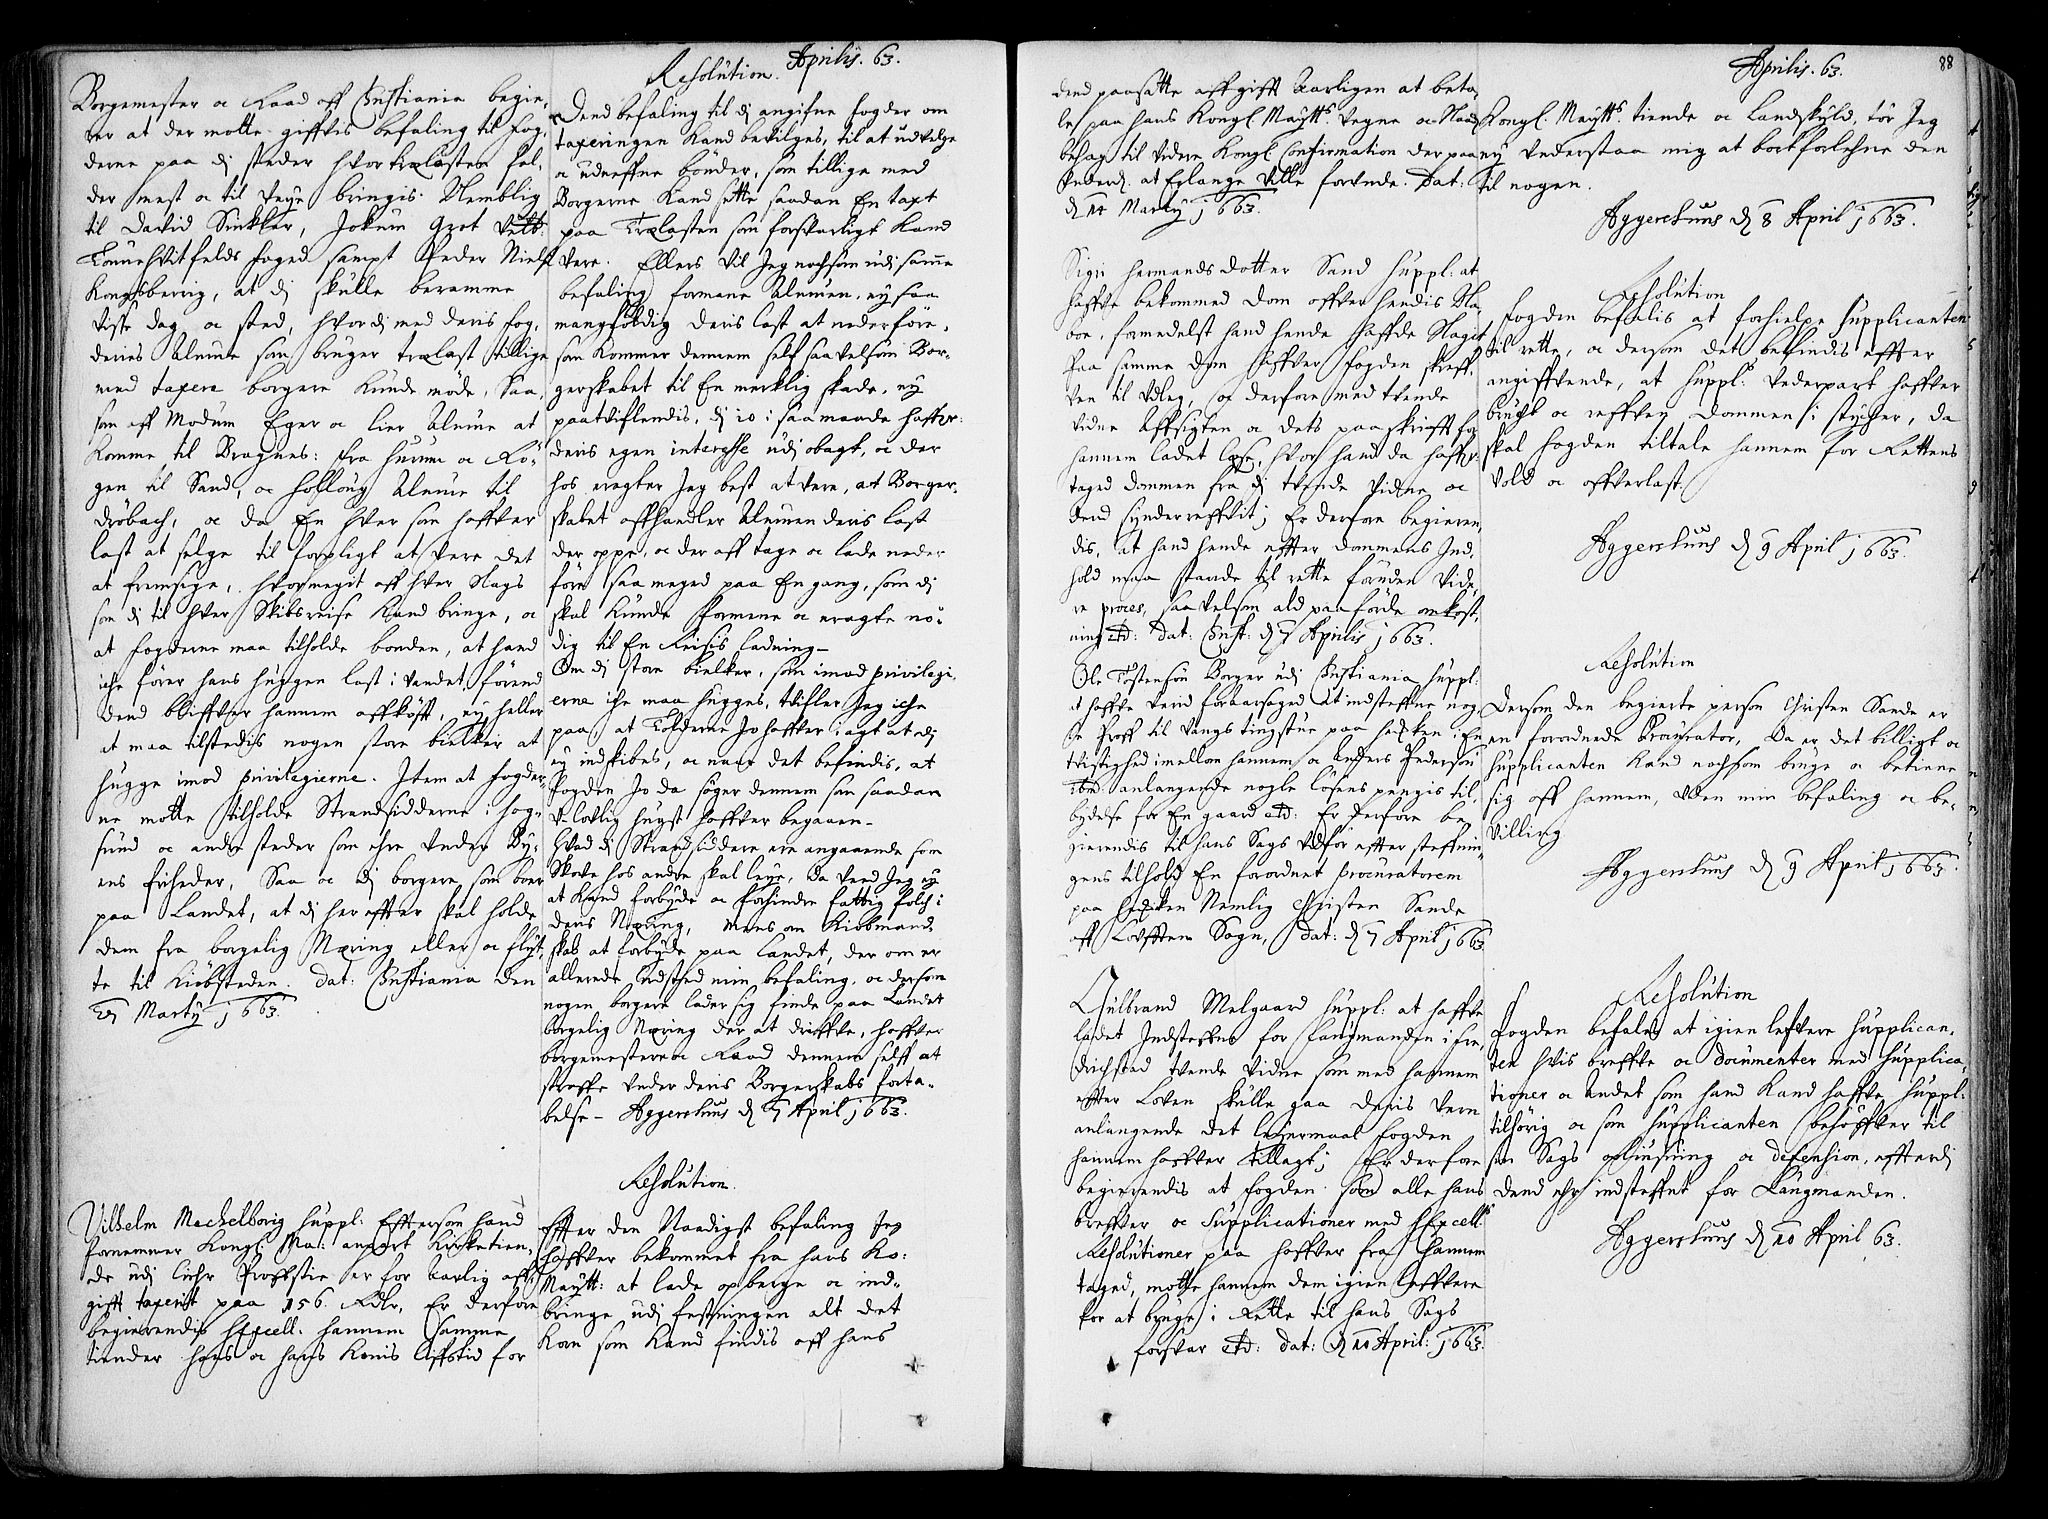 Aprilis. 63.
Borgemester oc Raad aff Christiania begie,
rer at der motte giffvis befaling til fog,
derne paa di steder hvor trælasten fal,
der mest oc til Veye bringis. Nemblig
til David Sinkler, Jokum Grot
foged sampt Peder Niels
Kongsberrig, at di skulle beramme
visse dag oc sted, hvor di med deris fog,
deries Almue som bruger trælast tillige
med taxere borgere kunde møde, Saa,
som aff Modum Eger oc Lier Almue at
komme til Bragnes: fra Hurum oc Rö,
gen til Sand, oc Folloug Almue til
Dröbach, oc da En hver som haffver
last at selge til forpligt at vere det
at fremsige, hvormegit aff hver slags
som di til hver Skibsreise kand bringe, oc
at fogderne maa tilholde bonden, at hand
iche förer hans huggen last i vandet, förend
dend bliffver hannem affköfft, ey heller
at maa tilstedis nogen store bielker at
hugge imod privilegierne. Item at fogder,
ne motte tilholde Strandsidderne i Hog,
sund oc andre steder som ehre under By,
ens friheder, Saa oc di borgere som boer
paa Landet, at di her effter skal holde
dem fra borgelig Næring eller oc flyt,
te til Kiöbsteden. Dat: Christiania den
Marty 1663.
Vilhelm Mechelborig Suppl: Efftersom hand
fornemmer Kongl: Ma: anpart Kirketien,
de udi Liehr Proffstie er for aarlig aff,
gifft taxerit paa 156. Rdlr, Er derfore
begierendis hExcell: hannem samme
tiender hans oc hans Konis Liffstid for
Resolution.
Dend befaling til di angifne fogder om
taxeringen kand bevilges, til at udvelge
oc udneffne bönder, som tillige med
Borgerne kand sette saadan En taxt
paa Trælasten som forsvarligt kand
vere. Ellers vil Jeg nochsom udi samme
befaling formane Almuen, ey saa
mangfoldig deris last at nederföre,
som kommer dennem self saavelsom Bor,
gerskabet til En merklig skade, ey
paatviflendis, di jo i saa maade haffver
deris egen interesse udi obagt, oc der
hos eragter Jeg best at vere, at Borger,
skabet affhandler Almuen deris last
der oppe, oc der aff tage oc lade neder
före saa meged paa En gang, som di
skal kunde fornemme oc eragte nö,
dig til En Reisis ladning-
Om di store bielker, som imod privilegi,
erne iche maa hugges, tvifler Jeg iche
paa, at Tolderne Jo haffver i agt at di
ey indskibes, oc naar det befindis, at
fogden Jo da söger dennem som saadan
u-lovlig hugst haffver begaaen-
Hvad di Strandsiddere ere angaaende som
Skove hos andre skal leye, da veed Jeg ey
at kand forbyde oc forhindre fattig folch i
deris Næring, Mens om Kiöbmand,
skab at forbyde paa Landet, der om er
allerede udsted min befaling, oc dersom
nogen borgere lader sig finde paa Landet
borgelig Næring der at driffve, haffver
borgemestere oc Raad dennem selff at
straffe under deris Borgerskabs forta,
belse- Aggershuus d 7 April 1663.
Resolution.
Effter den Naadigst befaling Jeg
haffver bekommet fra hans Ko:
Maytt: at lade opberge oc ind,
bringe udi festningen alt det
Korn som kand findis aff hans
Aprilis. 63.
88
dend paasatte affgifft Aarligen at beta,
le paa hans Kongl Maytts Vegne oc Naad
behag til videre Kongl Confirmation der paa
at Erlange Ville forunde. Dat:
d 11 Marty 1663.
Sigri Hermandsdotter Sand Suppl: at
haffve bekommed Dom offver hendis Na,
boe, formedelst hand hende haffde slagit
Paa samme dom haffver fogden skreff,
ven til Udleg, oc derfore med tvende
vidne Affsigten oc dets paaskrifft for
hannem ladet læse, hvor hand da haffver
taged dommen fra di tvende vidne oc
dend synderreffvit; Er derfore begieren,
dis, at hand hende effter dommens Ind,
hold maa staande til rette foruden vide,
re proces, saavelsom ald paaförde omkost,
ning etc: Dat: Christ: d 7 Aprilis 1663.
Ole Torstensön Borger udi Christiania Suppl:
at haffve verid foraarsaged at indsteffne nog
le Proff til Vangs tingstue paa Hedken i En
tvistighed imellom hannem oc Anders Pedersön
ibid: anlangende nogle Lösens pengis til,
bydelse for En gaard etc: Er derfore be
gierendis til hans Sags udför effter steffnin,
gens tilhold En forordnet procuratorem
paa Hedken Nemlig Christen Sande
aff Löfften Sogn, Dat: d 7 April 1663
Gulbrand Melgaard Suppl: at haffve
ladet Indsteffne for Laugmanden i Fre,
drichsted tvende vidne som med hannem
effter Loven skulle gaa deris vern
anlangende det leyermaal fogden
hannem haffver tillagt; Er derfore
begierendis at fogden som alle hans
breffver oc Supplicationer med hExcell
Resolutioner paa haffver fra hannem
taged, motte hannem dem igien leffvere
for at bruge i Rette til hans Sags
forsvar etc: dat: d 10 April: 1663.
Kongl. Maytts tiende oc Landskyld, tör Jeg
ey understaa mig at bortforlehne den
til nogen.
Aggershuus d 8 April 1663.
Resolution
Fogden befalis at forhielpe Supplicanten
til rette, oc dersom det befindis effter
angiffvende, at Suppl: vederpart haffver
brugt oc reffven dommen i stycher, da
skal fogden tiltale hannem for Rettens
vold oc offverlast.
Aggershuus d 9 April 1663.
Resolution
Dersom den begierte person Christen Sande er
en forordnede Procurator, Da er det billigt oc
Supplicanten kand nochsom bruge oc betiene
sig aff hannem, uden min befaling oc be,
villing
Aggershuus d 9 April 1663.
Resolution
Fogden befales at igien leffvere Supplican,
ten hvis breffve oc documenter med Supplica,
tioner oc Andet som hand kand haffve Suppl:
tilhörig oc som Supplicanten behöffver til
sin Sags oplysning oc defension, efftersdi
dend ehr indsteffnt for Laugmanden.
Aggershuus d 10 April 63.